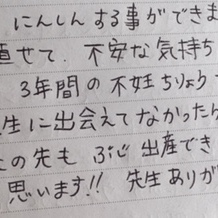 にんしんする事ができま
直せて、不安な気持ち
3年間の不妊ちりょう
生に出会えてなかったら
この先も ぶじ 出産でき
思います!! 先生ありが